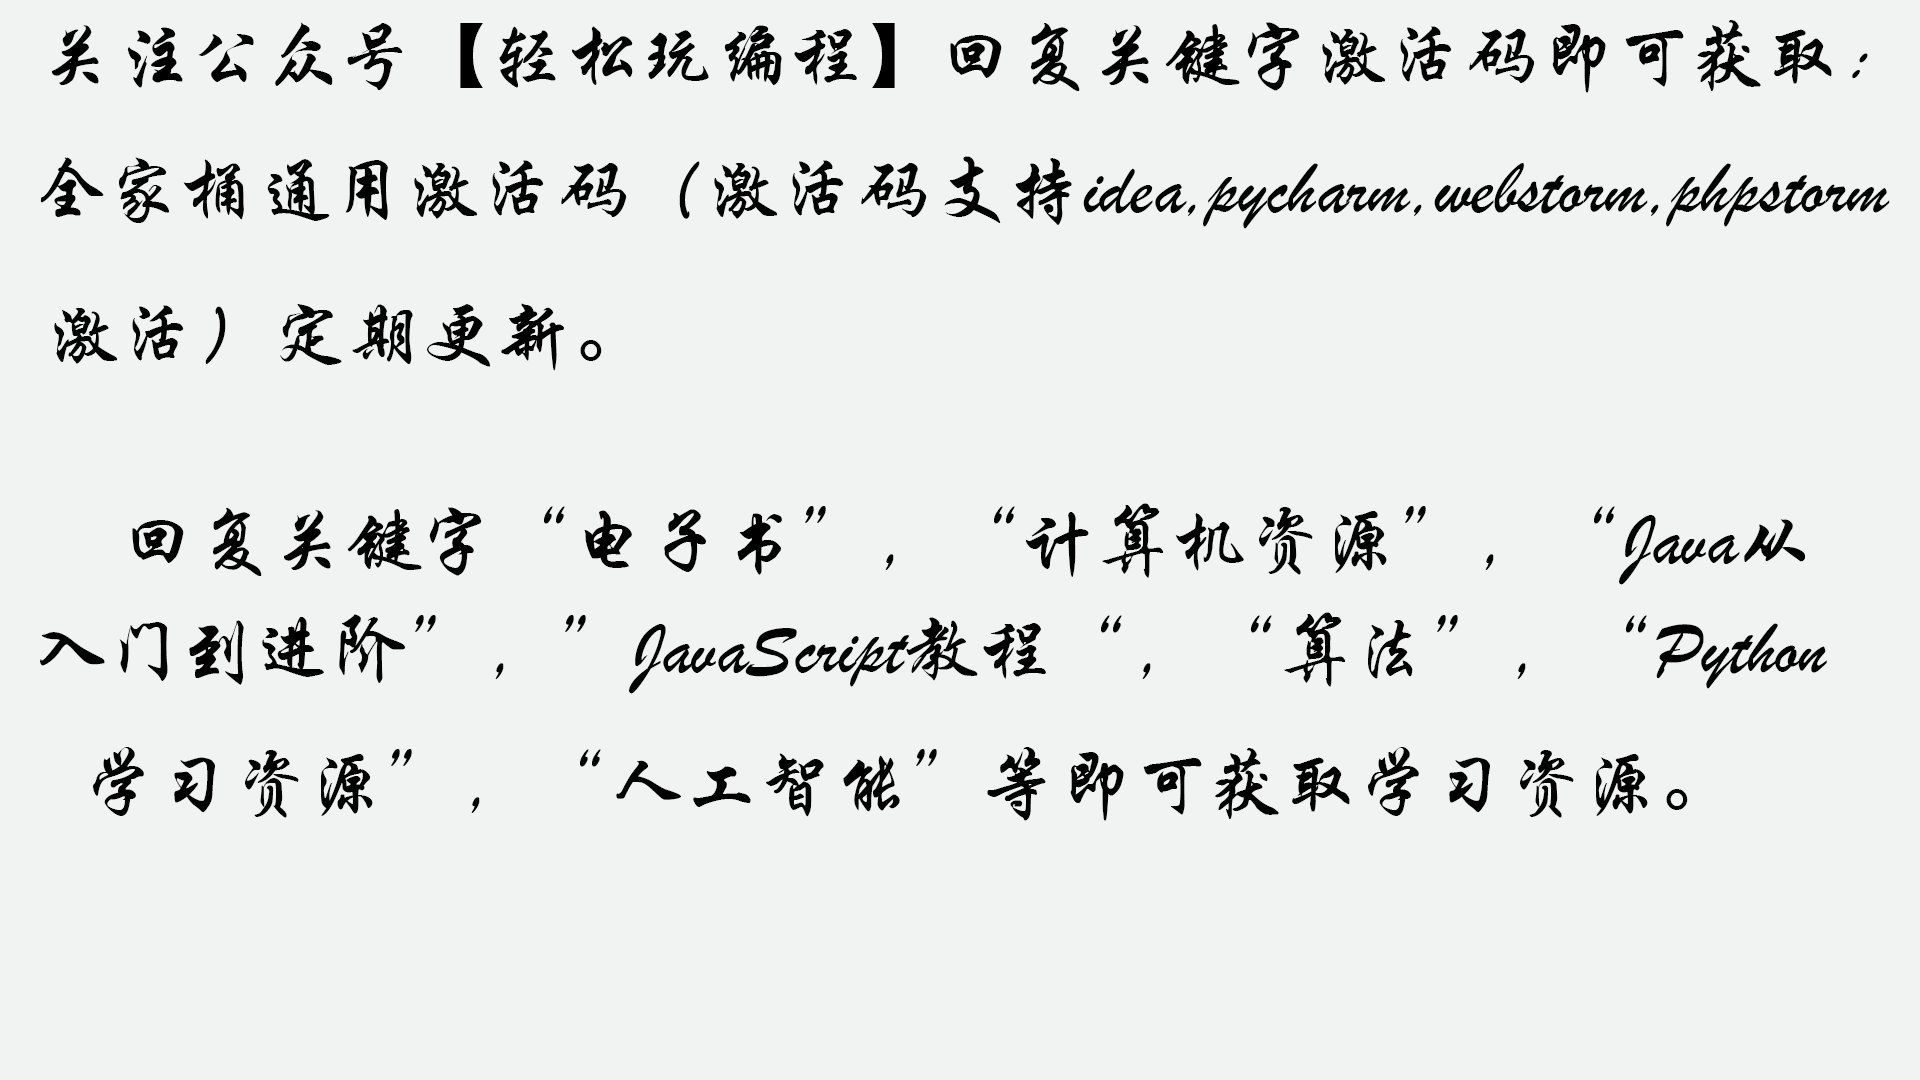 关注公众号【轻松玩编程】回复关键字激活码即可获取：
全家桶通用激活码（激活码支持idea,pycharm,webstorm,phpstorm
激活）定期更新。
回复关键字“电子书”，“计算机资源”，“Java从
入门到进阶”，”JavaScript教程“，“算法”，“Python
学习资源”，“人工智能”等即可获取学习资源。